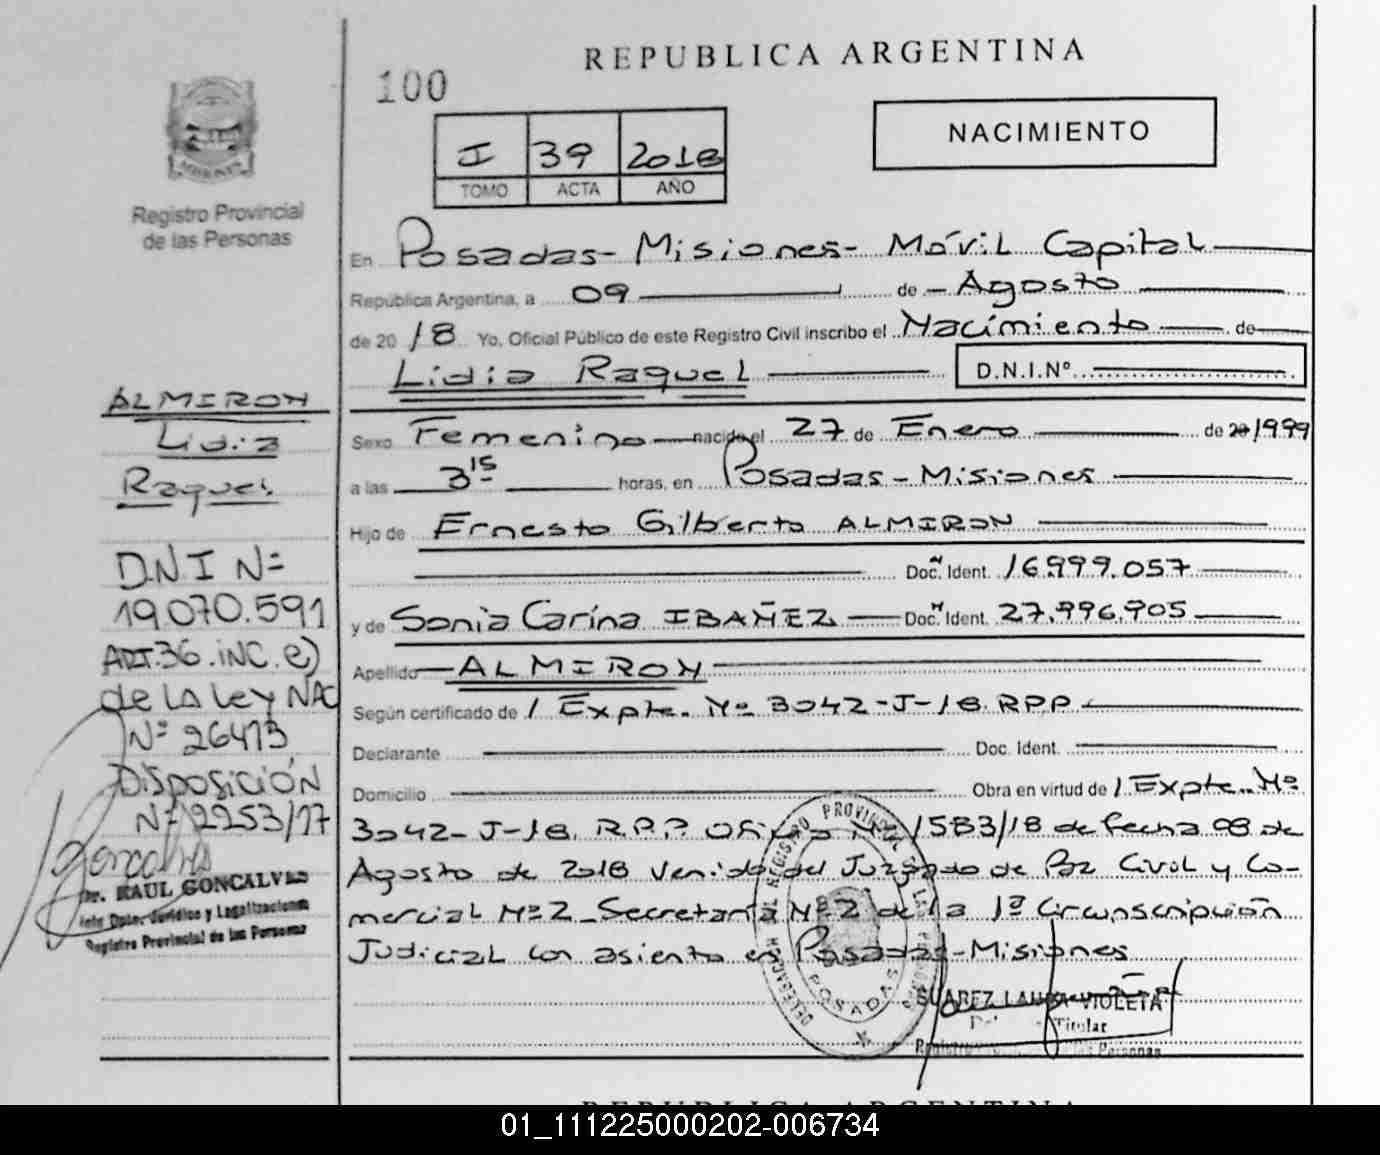 REPUBLICA ARGENTINA
100
NACIMIENTO
I 39 2018
TOMO ACTA AÑO
MISIONES
Registro Provincial
de las Personas
En Posadas - Misiones - Móvil Capital
República Argentina, a 09 de Agosto
de 20 18 Yo, Oficial Público de este Registro Civil inscribo el Nacimiento de
Lidia Raquel D.N.I.Nº
Sexo Femenino nacido el 27 de Enero de 20 1999
a las 3 15 horas, en Posadas - Misiones
Hijo de Ernesto Gilberto ALMIRON
Doc. Ident. 16.999.057
y de Sonia Carina IBAÑEZ Doc. Ident. 27.996.905
Apellido ALMIRON
Según certificado de / Expte. Nº 3042-J-18. RPP
Declarante Doc. Ident.
Domicilio Obra en virtud de / Expte. Nº
3042-J-18. R.P.P. Oficio Nº 1583/18 de fecha 08 de
Agosto de 2018 venido del Juzgado de Paz Civil y Co-
mercial Nº 2 - Secretaría Nº 2 de la 1ª Circunscripción
Judicial con asiento en Posadas - Misiones
ALMIRON
Lidia
Raquel
D.N.I Nº
19.070.591
ART. 36. iNC. e)
de LA Ley NAC
Nº 26413
DISPOSICIÓN
Nº 2253/17
Dr. RAUL GONCALVES
Jefe Dpto. Jurídico y Legalizaciones
Registro Provincial de las Personas
POSADAS
SUAREZ LAURA VIOLETA
Titular
REPUBLICA ARGENTINA
01_111225000202-006734